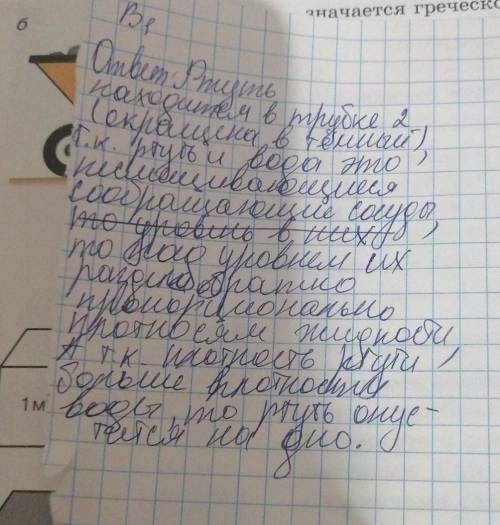 значается греческо
б
В₁
Ответ: Ртуть
находится в трубке 2
(окращена в тёмный),
т.к. ртуть и вода это
несмешивающиеся
сообращающие сосуды,
то уровень в них
то над уровнем их
обратно
пропорционально
плотносям жидкости,
А т.к. плотность ртути
больше плотности
воды, то ртуть опус-
тется на дно.
1м